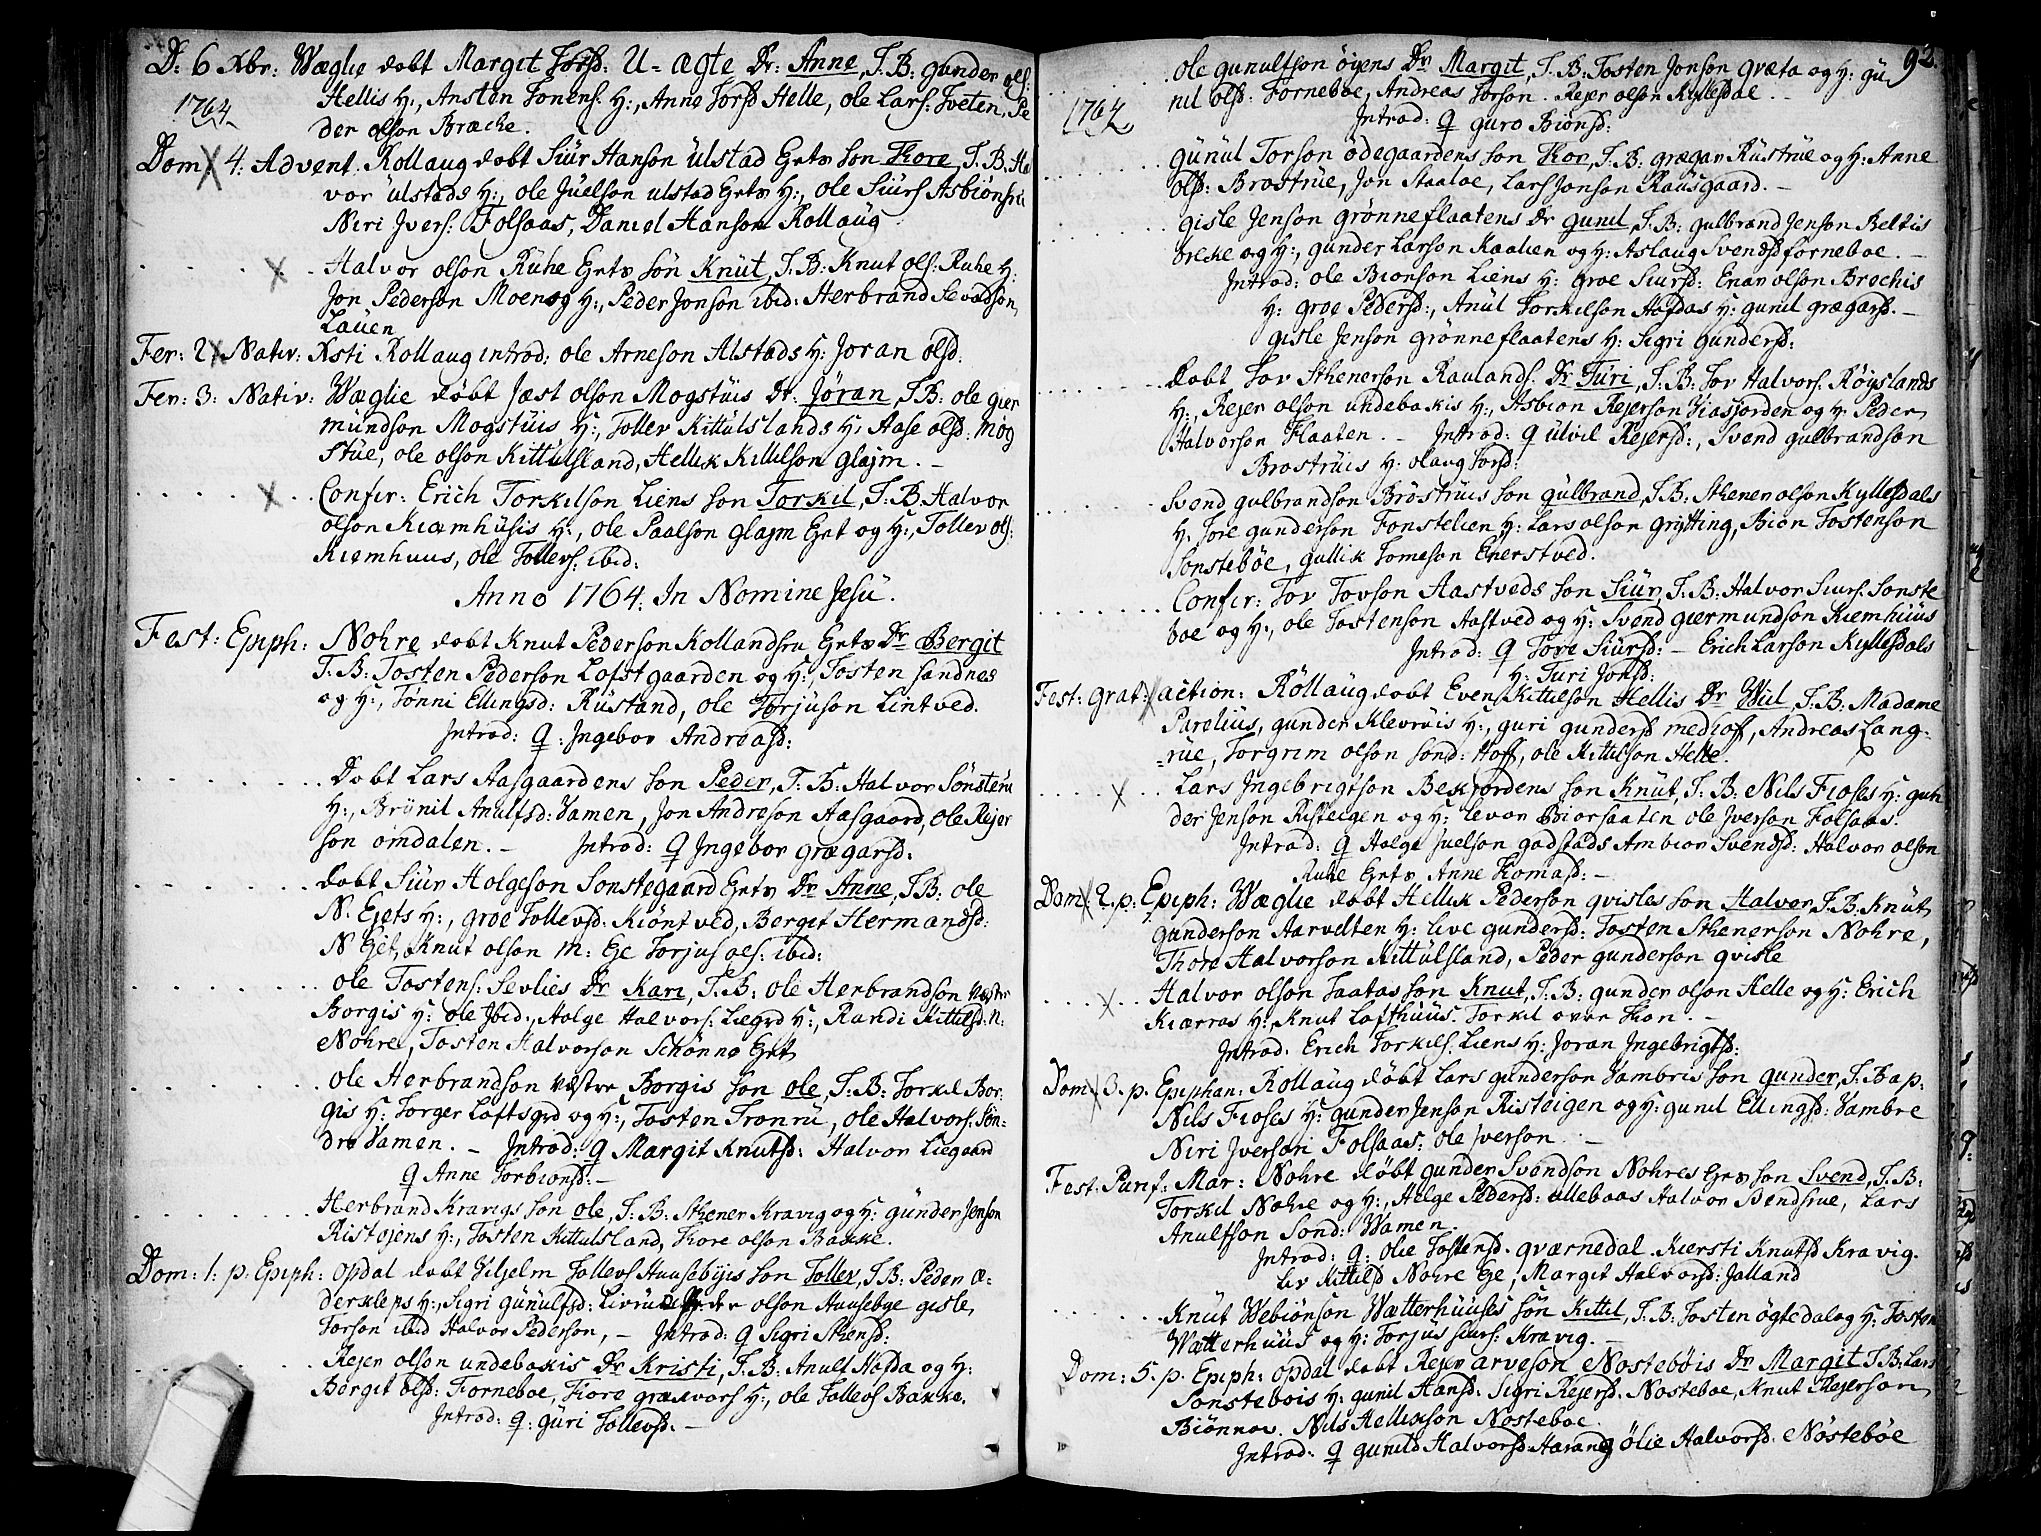 D: 6 Xbr: Wæglie døbt Margit Torsd: U-ægte Dr: Anne, T.B: Gunder ols:
1764
Hellis H:, Ansten Tonens: H:, Anne Torsd Helle, ole Lars: Tveten, Pe
der olson Bræche.
Dom: 4. Advent. Rollaug døbt Siur Hanson Ulstad Eyets son Thore, T.B. Ha
vor Ulstads H:, ole Juelson Ulstad Eyets H:, ole Siurs Asbiønsru
Niri Jvers: Folsaas, Daniel Hanson Rollaug
Halvor olson Ruhe Eyets søn Knut, T.B: Knut ols: Ruhe H:
Jon Pederson Moen og H:, Peder Jonson ibid: Herbrand Sevadson
Lauen
Fer: 2 Nativ: Xsti Rollaug introd: ole Arneson Alstads H: Joran olsd:
Fer: 3: Nativ: Wæglie døbt Jæst olson Mogstuis Dr: Jøran, T.B: ole gier
mundson Mogstuis H:, Tollev Kittulslands H: Aase olsd: Mog
stue, ole olson Kittulsland, Hellik Killilson Glajm. -
Confir: Erich Torkilson Liens son Torkil, T.B. Halvor
olson Kiæmhusis H:, ole Paalson Glajm Eyet og H:, Tollev ols:
Kiemhuus, ole Tollevs: ibid:
Anno 1764. In Nomine Jesu.
Fest: Epiph: Nohre døbt Knut Pederson Kollandsru Eyets Dr Bergit
T.B: Tosten Pederson Loftsgaarden og H: Tosten Sandnes
og H:, Tønni Ellingsd: Rustand, ole Torjuson Lintved.
Introd: Q: Ingebor Andreasd:
Døbt Lars Aasgaardens son Peder, T.B: Halvor Sønsteru
H:, Brynil Anulfsd: Vamen, Jon Andreson Aasgaard, ole Rejer
son omdalen. - Introd: Q Ingebor Grægarsd:
døbt Siur Holgeson Sonstegaard Eyets Dr Anne, T.B: ole
N. Ejets H:, Groe Tollevsd: Kiøntved, Bergit Hermandsd:
N Ejet, Knut olson M: Eje Torjus ols: ibid:
ole Tostens: Sevlies Dr Kari, T.B: ole Herbrandson Væstre
Borgis H: ole Ibid:, Holge Halvors: Liegrd H:, Randi Kittilsd: N:
Nohre, Tosten Halvorson Schønne Eyet
ole Herbrandson Væstre Borgis son ole, T.B: Torkil Bor-
gis H: Torger Loftsgrd og H:, Tosten Tronru, ole Halvors: Søn-
dre Vamen. - Introd: Q Margit Knutsd: Halvor Liegaard
Q Anne Torbionsd: -
Herbrand Kravigs son ole, T.B: Sthener Kravig og H: Gunder Jenson
Ristejens H:, Tosten Kittulsland, Thore olson Bakke.
Dom: 1: p: Epiph: opdal døbt Vilhelm Tollevs Huusebyis son Tollev, T.B: Peder Æ-
derkleps H:, Sigri Gunulfsd: Livrud, Peder olson Huusebye gisle
Torson ibid Halvor Pederson, - Introd: Q Sigri Sthensd:
Rejer olson undebakis Dr Kristi, T.B: Anulf Hofda og H:
Bergit olsd: Forneboe, Thore grævors H:, ole Tollevs Bakke.
Introd: Q: Guri Tollevsd: -
92.
ole Gunulfson øyens Dr Margit, T.B: Tosten Jonson Qvæta og H: Gu
1764
nil olsd: Forneboe, Andreas Torson. Rejer olson Kyllesdae. -
Introd: Q Guro Biønsd:
Gunul Torson ødegaardens son Thor, T.B: Grægar Rustrue og H: Anne
olsd: Brostrue, Jon Staaloe, Lars Jonson Rausgaard. -
Gisle Jenson Grønneflaatens Dr Gunil, T.B: Gulbrand Jenson Beltis
breke og H:, Gunder Larson Kaalien og H: Aslaug Svendsd Forneboe. -
Introd: ole Bionson Liens H: Groe Siursd: Enar olson Brechis
H: Groe Pedersd:, Anul Torkilson Hofdas H: Gunil Grægarsd. -
Gisle Jenson Grønneflaatens H: Sigri Gundersd:
døbt Tor Sthenerson Raulands Dr Turi, T.B: Tor Halvors: Røyslands
H:, Rejer olson undebakis H:, Asbion Rejerson Viasjorden og H: Peder
Halvorson Flaaten. - Introd: Q Ulvil Rejersd:, Svend Gulbrandson
Brostruis H: olaug Torsd:
Svend Gulbrandson Brøstruis son Gulbrand, T.B: Sthener olson Kyllesdals
H: Tore Gunderson Fonstelien H: Lars olson Grytting, Bion Tostenson
Sonstebøe, Gullik Tomeson Enerstved.
Confir: Tov Tovson Aastveds son Siur, T.B: Halvor Siurs: Sonste
boe og H:, ole Tostenson Aastved og H: Svend Giermundson Kiemhuus
Introd: Q Tore Siursd: - Erich Larson Kyllesdals
H: Turi Jonsd:
Fest: Grat: action: Rollaug døbt Even Kittilson Hellis Dr Wul, T.B: Madame
Pirelius, Gunder Klevruis H:, Guri Gundersd medhoff, Andreas Lang-
rue, Torgrim olson sond: Hoff, ole Kittilson Helle.
Lars Ingebrigtson Bekjordens son Knut, T.B: Nils Fioses H: Gun
der Jenson Risteigen og H: Levor Biorsaaten ole Jverson Folsaas.
Introd: Q Holge Juelson Gadstads Ambior Svendsd: Halvor olson
Ruhe Eyets Anne Tomasd: -
Dom: 2. p: Epiph: Wæglie døbt Hellik Pederson Qvisles son Halvor, T.B: Knut
Gunderson Aarvelten H: Live Gundersd: Tosten Sthenerson Nohre,
Thore Halvorson Kittulsland, Peder Gunderson Qvisle
Halvor olson Taatas son Knut, T.B: Gunder olson Helle og H: Erich
Kiærras H:, Knut Lofthuus. Torkil over Hon. -
Introd. Erich Torkils: Liens H: Joran Ingebrigtsd:
Dom: 3. p. Epiphan: Rollaug døbt Lars Gunderson Vambris son Gunder, T.B a p:
Nils Fioses H: Gunder Jenson Risteigen og H: Gunil Ellingsd: Vambre
Niri Jverson Folsaas: ole Jverson. -
Fest: Purif: Mar: Nohre døbt Gunder Svendson Nohres Eyets son Svend, T.B:
Torkil Nohre og H:, Helge Pedersd: Ullebaas Halvor Bendsrue, Lars
Anulfson Sond: Wamen.
Introd: Q: olie Tostensd. Qværnedal. Kiersti Knutsd Kravig.
Liv Kittilsd Nohre Eje, Margit Halvorsd: Jalland
Knut Webiønson Wætterhuuses son Kittil, T.B: Tosten øgtedal og H: Tosten
Wætterhuus og H: Torjus siurs: Kravig. -
Dom: 5. p. Epiph: Opdal døbt Rejer Arveson Nostebøis Dr Margit T.B: Lars
Sonstebois H: Gunil Hansd: Sigri Rejersd. Nosteboe, Knut Rejerson
Biønnev. Nils Hellikson Nosteboe.
Introd: Q Gunild Halvorsd: Harang Ølie Halvorsd. Nøstebøe